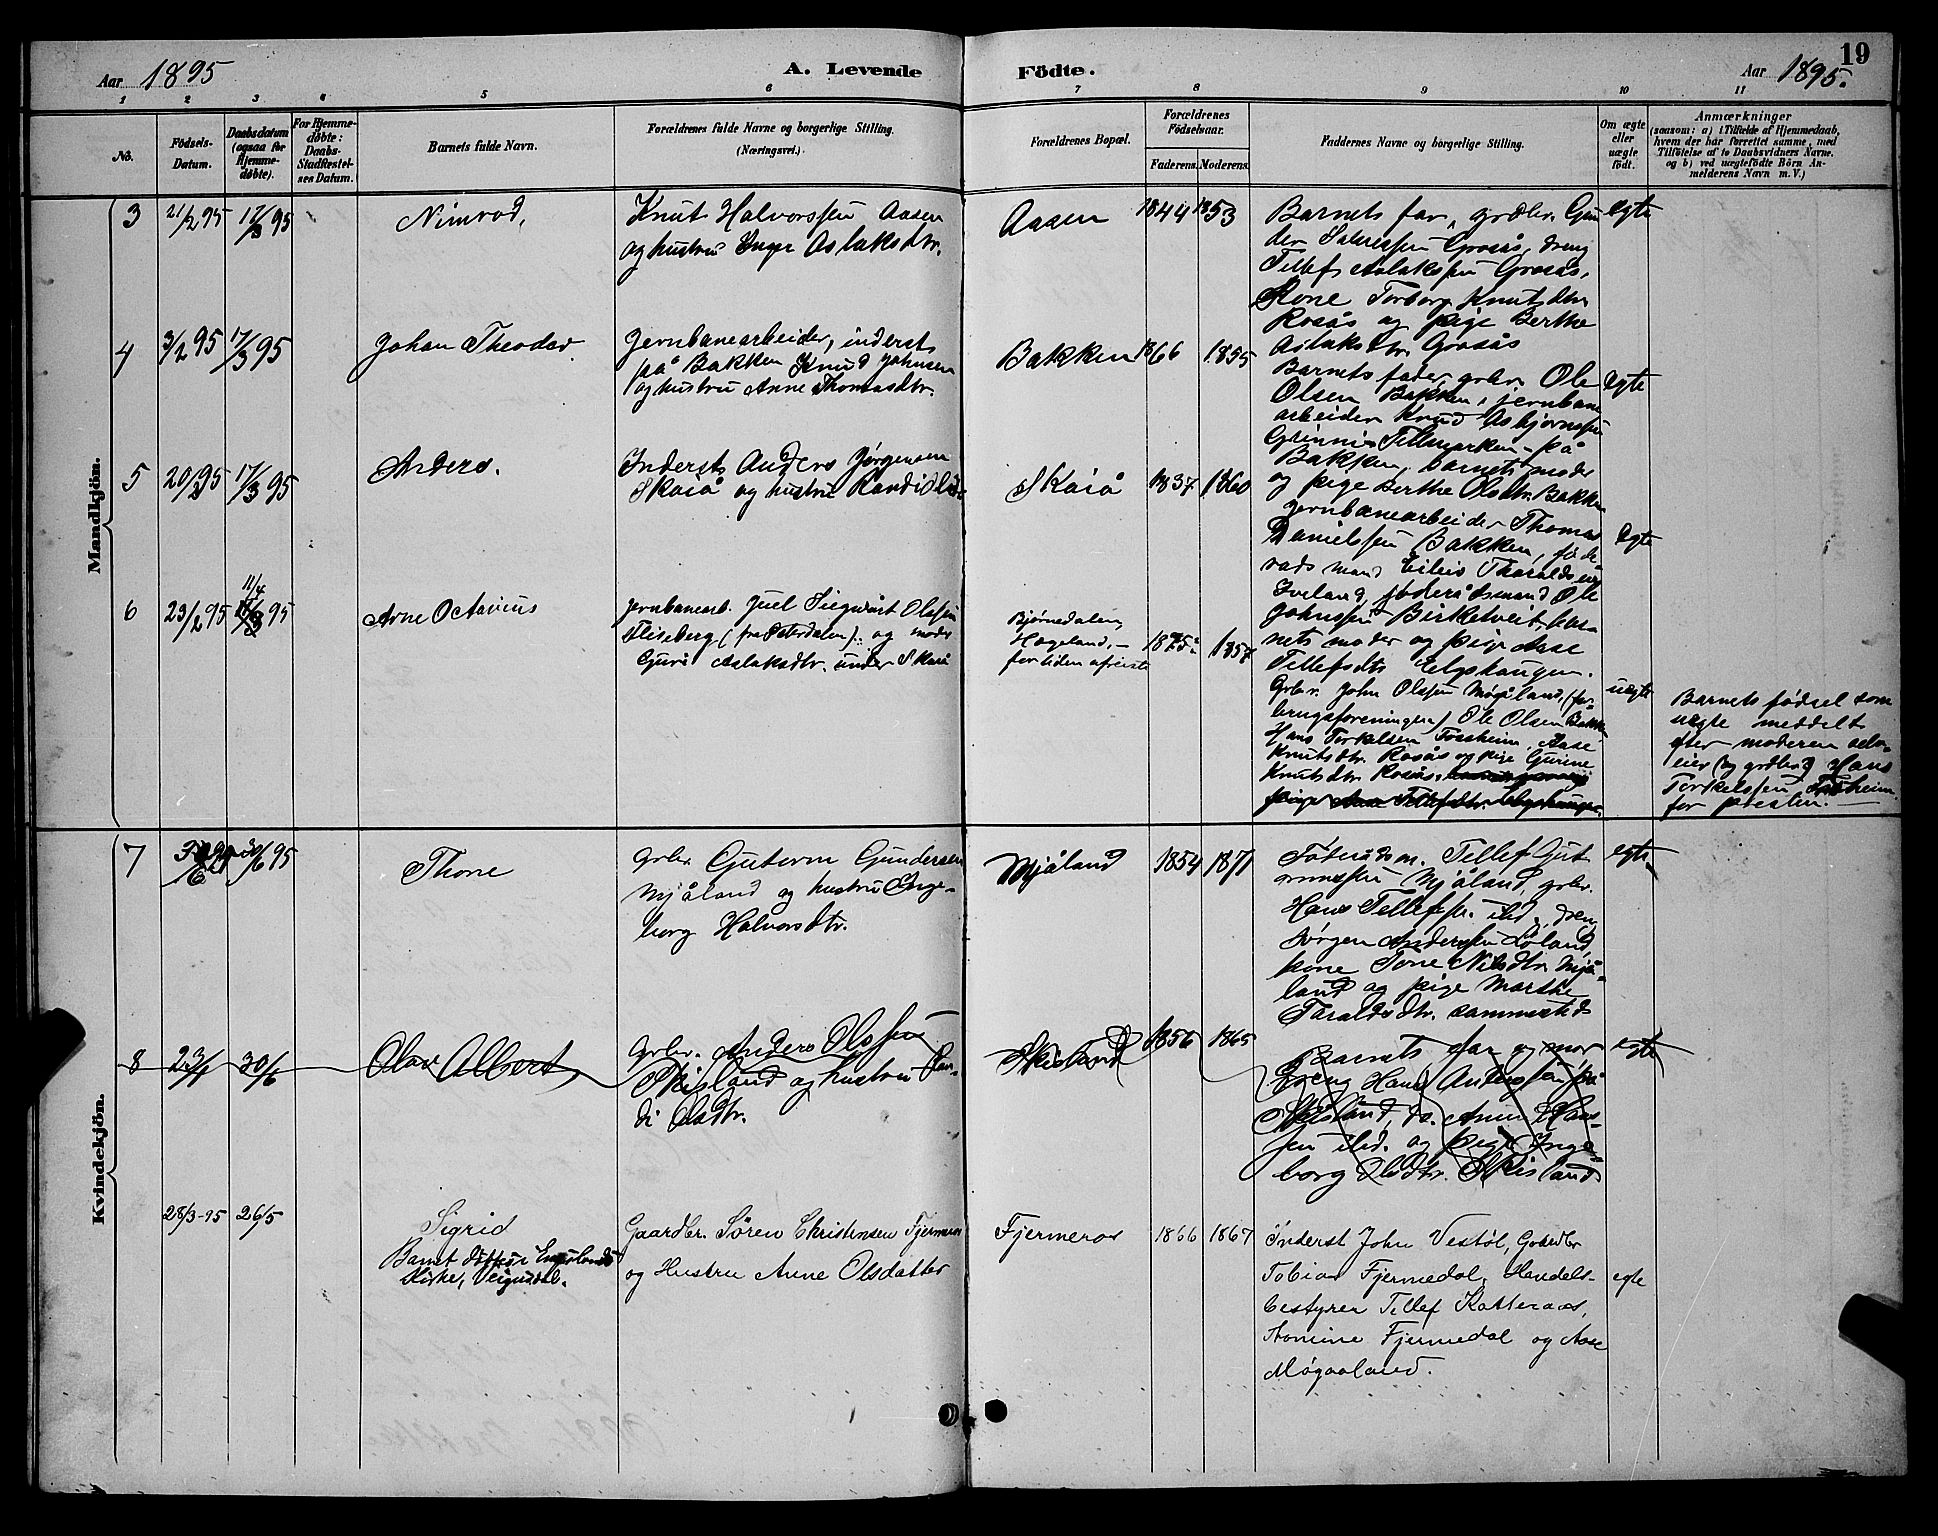 Aar 1895
A. Levende
Födte.
Aar 1895.
19
1 2 3 4 5 6 7 8 9 10 11
No.
Födsels-
Datum.
Daabsdatum
(ogsaa for
Hjemme-
døbte).
For Hjemme-
døbte:
Daabs-
Stadfæstel-
ses Datum.
Barnets fulde Navn.
Forældrenes fulde Navne og borgerlige Stilling.
(Næringsvei.)
Forældrenes Bopæl.
Forældrenes
Födselsaar.
Faderens. Moderens.
Faddernes Navne og borgerlige Stilling.
Om ægte
eller
uægte
födt.
Anmærkninger
(saasom: a) i Tilfælde af Hjemmedaab,
hvem der har forrettet samme, med
Tilföielse af to Daabsvidners Navne.
og b) ved uægtefödte Börn An-
melderens Navn m. V.)
Mandkjön.
3 21/2 95 17/3 95
Nimrod,
Knut Halvorssen Aasen
og hustru Inger Aslaksdtr.
Aasen
1844 1853
Barnets far, grdbr. Gun
der Salvessen Grosås, dreng
Tellef Aslakssen Grosås,
Kone Torborg Knutsdtr
Rosås og pige Berthe
Aslaksdtr. Grosås
egte
4 3/2 95 17/3 95
Johan Theodor
Jernbanearbeider, inderst
på Bakken Knud Johnsen
og hustru Anne Thomasdtr.
Bakken
1866 1855
Barnets fader, grbr. Ole
Olsen Bakken, jernbane
arbeider Knud Asbjørnssen
Tellmarken - på
Bakken, barnets moder
og pige Berthe Olsdtr. Bakken
egte
5 20/2 95 17/3 95
Anders.
Inderst Anders Jørgensen
Skaiå og hustru Randi
Skaiå
1837 1860
Jernbanearbeider Thomas
Danielssen Bakken, føde
råds mand Eileiv Tharaldsen
Iveland, føderådsmand Ole
Johnssen Birketveit, bar-
nets moder og pige Aase
Tellefsdtr Elgshaugen.
egte
6 23/2 95 11/4 95
Arne Octavius
Jernbanearb. Juel Sigwart Olsen
Fliseberg (fra Østerdalen).. og moder
Guro Aslaksdtr. under Skaiå
Bjørnedalen,
Hægeland, -
for tiden afreist
1875. 1857
Grbr. John Olssen Mogåland, (for-
brugsforeningen) Ole Olsen Bakken
Hans Torkelsen Fossheim, Aase
Knutsdtr. Rosås og pige Gurine
Knutsdtr Rosås.
pige Aase Tellefsdtr. Elgshaugen
uegte
Barnets fødsel som
uegte meddelt
efter moderen selv-
eier (og grdbr) Hans
Torkelssen Fossheim
for presten. -
Kvindekjön.
7 30/6 95
Thone
Grbr. Gutorm Gundersen
Mjåland og hustru Inge-
borg Halvorsdtr.
Mjåland
1854 1871
Føderådsm. Tellef Gut
ormssen Mjåland, grbr.
Hans Tellefssen. ibd, dreng
Jørgen Anderssen Løland
kone Tone Nilsdtr. Mjå-
land og pige Marthe
Taraldsdtr. sammested
egte
8 23/ 30/6
Olav Albert,
Grbr. Anders Olssen
Skisland og hustru Ran-
di Olsdtr.
Skisland
1856 1865
Barnets far og mor
Dreng Hans Anderssen på
Skisland, do. Anne Hans-
sen ibd. og pige Inge-
borg Olsdtr. Skisland
egte
28/3-95 26/5
Sigrid
Barnet døbt i Engelands
Kirke, Veigusdal.
Gaardbr. Søren Christensen Fjermeros
og Hustru Anne Olsdatter
Fjermeros
1866 1867
Inderst John Vestøl, Gaardbr
Tobias Fjermedal, Handels-
bestyrer Tellef Katteraas,
Tomine Fjermedal og Aase
Møgaaland.
egte